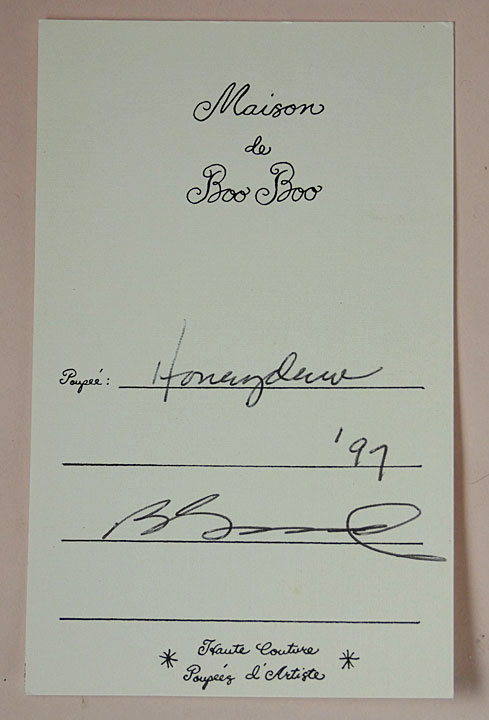 Maison
de
Boo Boo
Poupée: Honeydew
'97
Haute Couture
Poupées d'Artiste